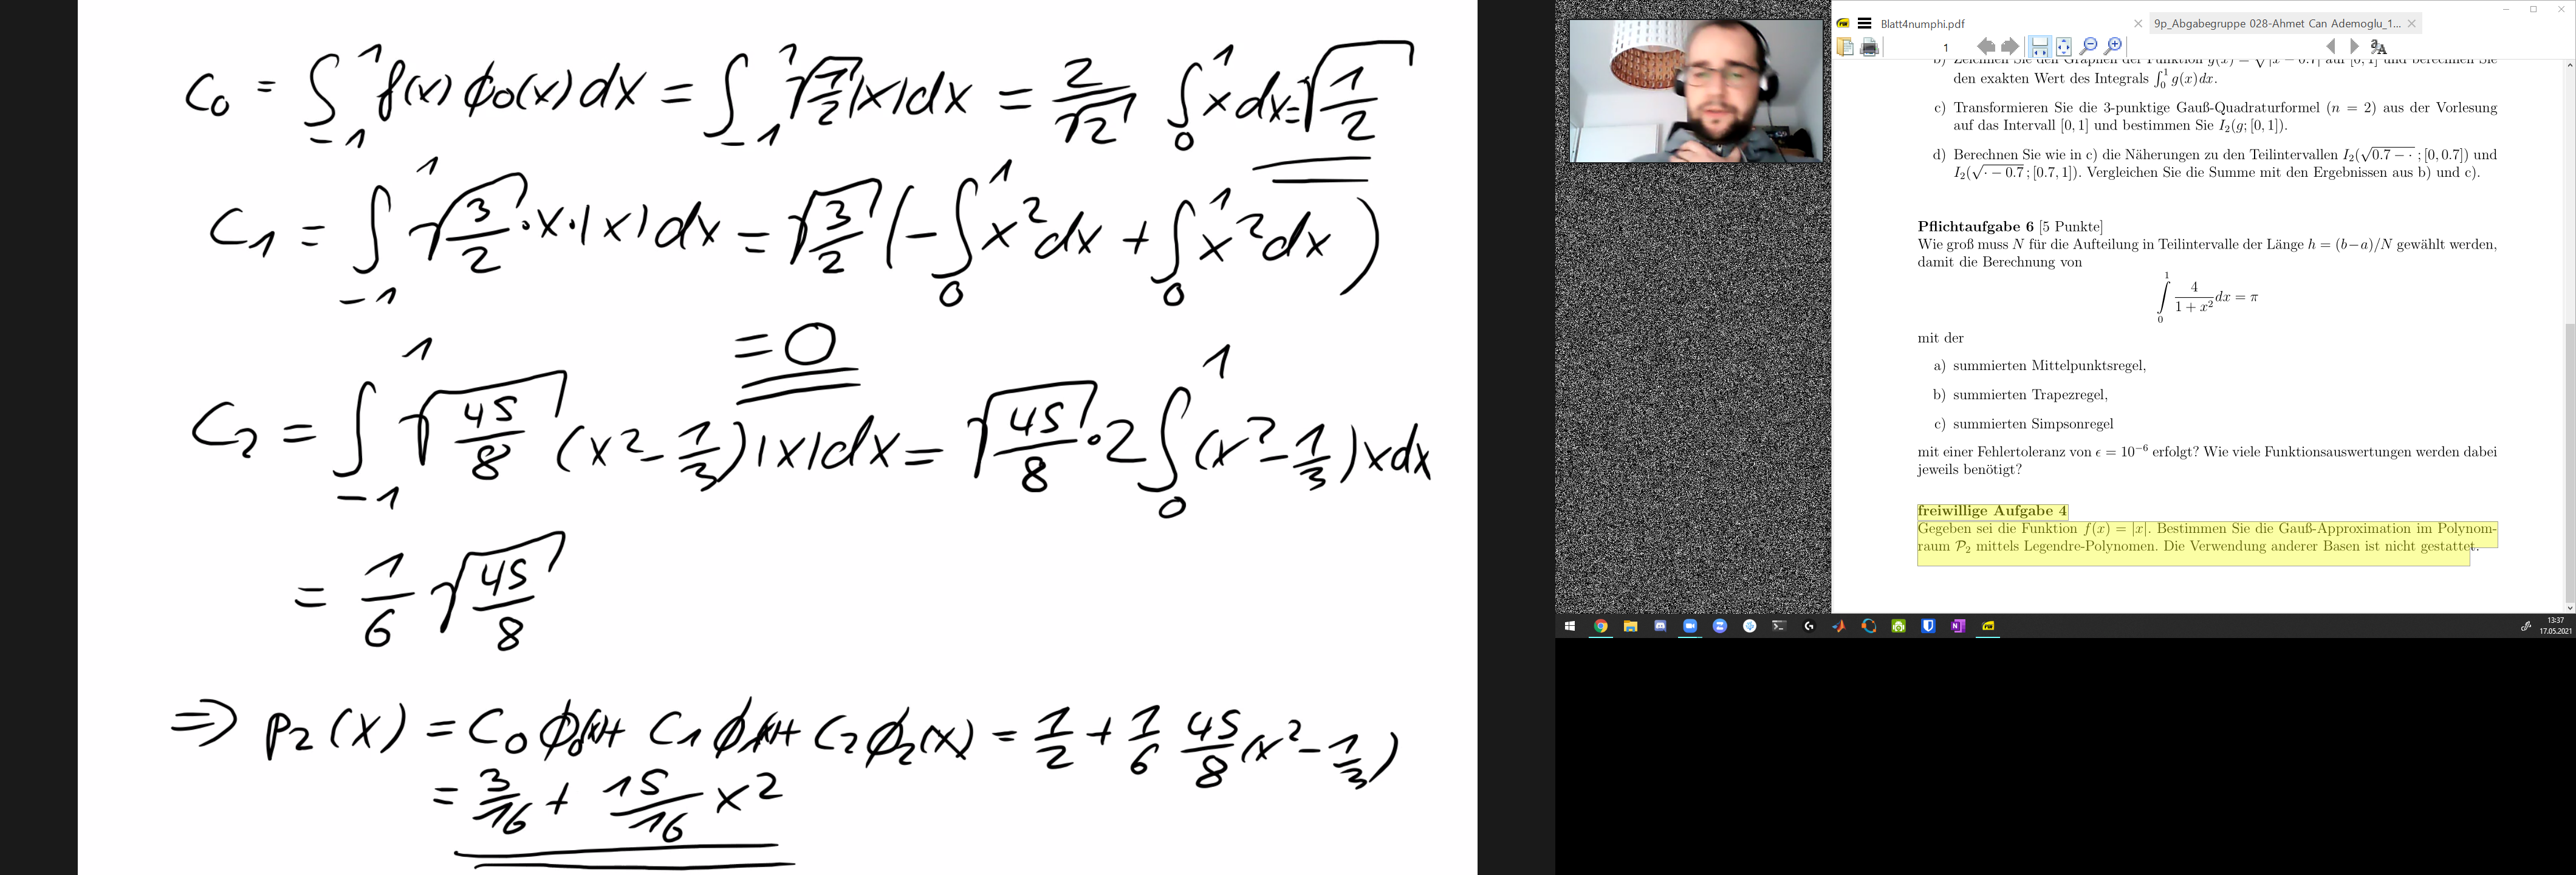 c₀ = ∫₋₁¹ f(x) ϕ₀(x) dx = ∫₋₁¹ √(1/2) |x| dx = 2/√2 ∫₀¹ x dx = √(1/2)
c₁ = ∫₋₁¹ √(3/2) · x · |x| dx = √(3/2) (− ∫₀¹ x² dx + ∫₀¹ x² dx)
= 0
c₂ = ∫₋₁¹ √(45/8) (x² − 1/3) |x| dx = √(45/8) · 2 ∫₀¹ (x² − 1/3) x dx
= 1/6 √(45/8)
⇒ p₂(x) = c₀ ϕ₀(x) + c₁ ϕ₁(x) + c₂ ϕ₂(x) = 1/2 + 1/6 45/8 (x² − 1/3)
= 3/16 + 15/16 x²
Blatt4numphi.pdf
9p_Abgabegruppe 028-Ahmet Can Ademoglu_1...
1
b) Zeichnen Sie den Graphen der Funktion g(x) = √|x − 0.7| auf [0, 1] und berechnen Sie
den exakten Wert des Integrals ∫₀¹ g(x) dx.
c) Transformieren Sie die 3-punktige Gauß-Quadraturformel (n = 2) aus der Vorlesung
auf das Intervall [0, 1] und bestimmen Sie I₂(g; [0, 1]).
d) Berechnen Sie wie in c) die Näherungen zu den Teilintervallen I₂(√(0.7 − ·) ; [0, 0.7]) und
I₂(√(· − 0.7) ; [0.7, 1]). Vergleichen Sie die Summe mit den Ergebnissen aus b) und c).
Pflichtaufgabe 6 [5 Punkte]
Wie groß muss N für die Aufteilung in Teilintervalle der Länge h = (b−a)/N gewählt werden,
damit die Berechnung von
∫₀¹ 4/(1 + x²) dx = π
mit der
a) summierten Mittelpunktsregel,
b) summierten Trapezregel,
c) summierten Simpsonregel
mit einer Fehlertoleranz von ϵ = 10⁻⁶ erfolgt? Wie viele Funktionsauswertungen werden dabei
jeweils benötigt?
freiwillige Aufgabe 4
Gegeben sei die Funktion f(x) = |x|. Bestimmen Sie die Gauß-Approximation im Polynom-
raum 𝒫₂ mittels Legendre-Polynomen. Die Verwendung anderer Basen ist nicht gestattet.
13:37
17.05.2021